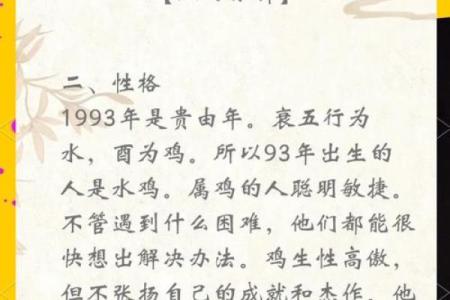 二、性格
1993年是贵由年。衰五行为
水，酉为鸡。所以93年出生的
人是水鸡。属鸡的人聪明敏捷。
不管遇到什么困难，他们都能很
快想出解决办法。鸡生性高傲，
但不张扬自己的成就和杰作。他